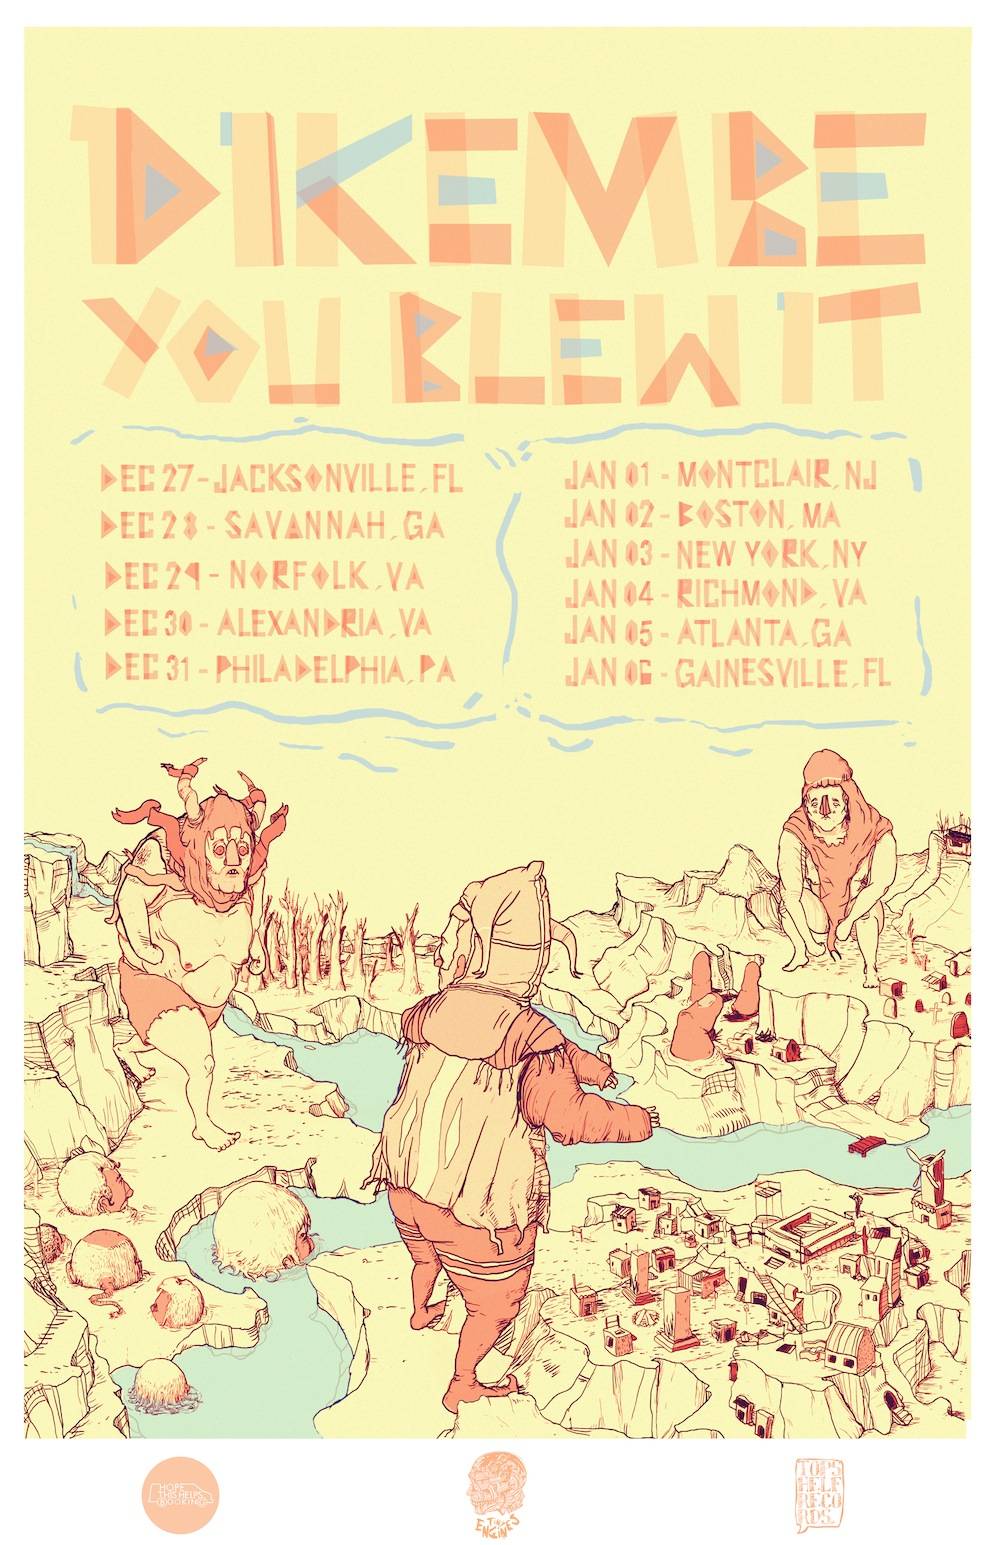 DIKEMBE
YOU BLEW IT
DEC 27 - JACKSONVILLE, FL
DEC 28 - SAVANNAH, GA
DEC 29 - NORFOLK, VA
DEC 30 - ALEXANDRIA, VA
DEC 31 - PHILADELPHIA, PA
JAN 01 - MONTCLAIR, NJ
JAN 02 - BOSTON, MA
JAN 03 - NEW YORK, NY
JAN 04 - RICHMOND, VA
JAN 05 - ATLANTA, GA
JAN 06 - GAINESVILLE, FL
HOPE
THIS HELPS
BOOKING
TINY
ENGINES
TOPS
HELF
RECO
RDS.